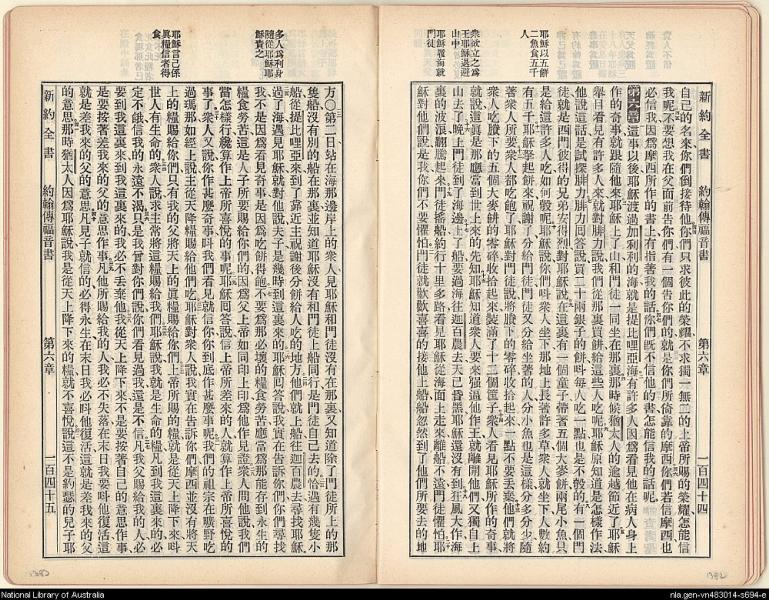 新約全書　約翰傳福音書　第六章　一百四十四
耶穌以五餅
二魚食五千
人
衆欲立之爲
王耶穌退避
山中
耶穌履海就
門徒
自己的名來你們倒接待他你們只求彼此的榮耀不求獨一無二的上帝所賜的榮耀怎能信
我呢不要想我在父面前告你們有一個告你們的就是你們所倚靠的摩西你們若信摩西也
必信我因爲摩西所作的書上有指著我的話你們既不信他的書怎能信我的話呢
第六章　這事以後耶穌渡過加利利的海就是提比哩亞海有許多人因爲看見他在病人身上
作的奇事就跟隨他來耶穌上了山和門徒一同坐在那裏那時候猶太人的逾越節近了耶穌
舉目看見有許多人來就對腓力說我們從那裏買餅給這些人吃呢耶穌原知道是怎樣作法
他說這話是試探腓力腓力回答說買二十兩銀子的餅每人吃一點也是不彀的有一個門
徒就是西門彼得的兄弟安得烈對耶穌說在這裏有一個童子帶著五個大麥餅兩尾小魚只
是給這許多人吃如何彀呢耶穌說你們呌衆人坐下那地上長著許多草衆人就坐下人數約
有五千耶穌拏起餅來祝謝了分給門徒門徒又分給坐著的人分小魚也是這樣分多分少隨
著衆人所要衆人都吃飽了耶穌對門徒說將賸下的零碎收拾起來一點不要丟棄他們就將
衆人吃賸下的五個大麥餅的零碎收拾起來裝滿了十二個筐子衆人看見耶穌所作的奇事
就說這眞是那應當到世上來的先知耶穌知道衆人要來强逼他作王就離開他們又獨自上
山去了晚上門徒到了海邊上了船要過海往迦百農去天已昏黑耶穌還沒有到狂風大作海
裏的波浪翻騰起來門徒搖櫓約行十里多路看見耶穌從海面上走來離船不遠門徒懼怕耶
穌對他們說是我你們不要懼怕門徒就歡歡喜喜的接他上船船忽然到了他們所要去的地
多人爲利身
隨從耶穌耶
穌責之
耶穌言己係
眞糧信者得
食
方〇第二日站在海那邊岸上的衆人見耶穌和門徒沒有在那裏又知道除了門徒所上的那
隻船沒有別的船在那裏並知道耶穌沒有和門徒上船同行是門徒自己去的恰遇有幾隻小
船從提比哩亞來到了靠近主祝謝後分餅給人吃的地方他們就上船往迦百農去尋找耶穌
過了海遇見耶穌就對他說夫子是幾時到這裏來的耶穌回答說我實在告訴你們你們尋找
我不是因爲看見奇事是因爲吃餅得飽不要爲那必壞的糧食勞苦應當爲那能存到永生的
糧食勞苦這是人子所要賜給你們的因爲父上帝如同印上印爲他作見證衆人問他說我們
當怎樣行纔算作上帝所喜悅的事呢耶穌回答說信上帝所差來的人就算作上帝所喜悅的
事了衆人又說你作甚麽奇事呌我們看見就信你你到底作甚麽事呢我們的祖宗在曠野吃
過瑪那如經上說主從天降糧給他們吃耶穌對衆人說我實在告訴你們摩西並沒有將天
上的糧賜給你們只有我的父將天上的眞糧賜給你們上帝所賜的糧就是從天上降下來呌
世人有生命的衆人說求主常將這糧賜給我們耶穌說我就是生命的糧凡到我這裏來的必
定不餓信我的永遠不渴只是我曾對你們說你們看見過我還是不信凡我父賜給我的人必
要到我這裏來到我這裏來的我必不丟棄他我從天上降下來不是要按著自己的意思作事
是要按著差我來的父的意思作事凡他所賜給我的人我必不失落在末日我要呌他復活這
就是差我來的父的意思凡見子就信的必得永生在末日我必呌他復活這就是差我來的父
的意思那時猶太人因爲耶穌說我是從天上降下來的糧就不喜悅說這不是約瑟的兒子耶
新約全書　約翰傳福音書　第六章　一百四十五
National Library of Australia
nla.gen-vn483014-s694-e